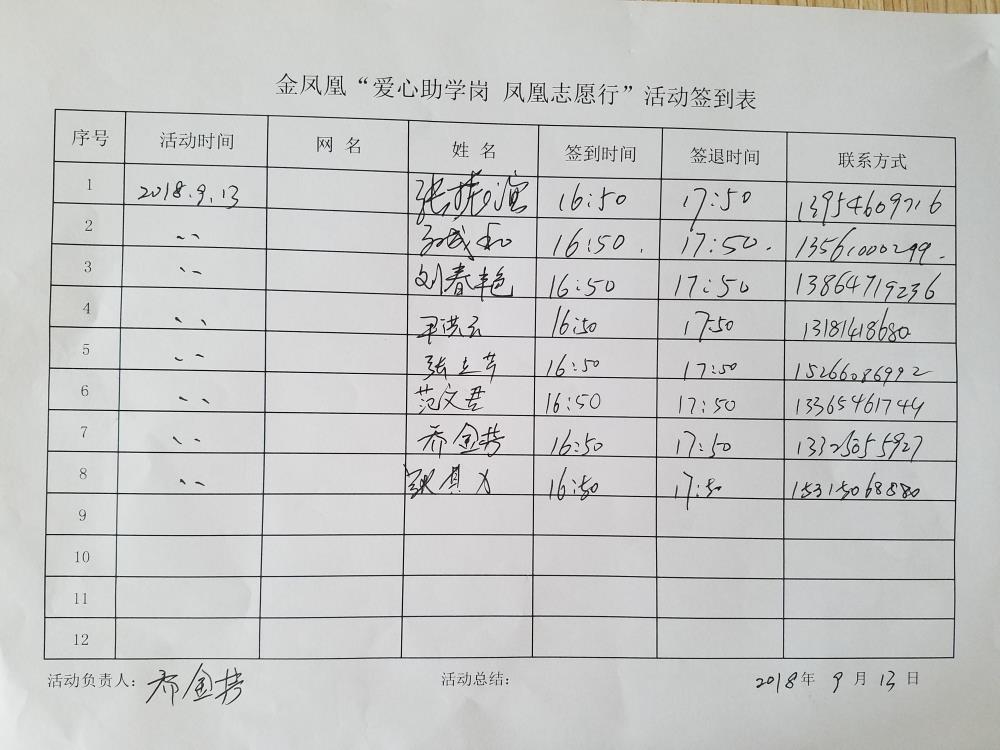 金凤凰“爱心助学岗 凤凰志愿行”活动签到表
序号 活动时间 网 名 姓 名 签到时间 签退时间 联系方式
1 2018.9.13 张 16:50 17:50 13954609716
2 、、 16:50. 17:50. 13561000299.
3 、、 刘春艳 16:50 17:50 13864719236
4 、、 王洪云 16:50 17:50 13181418680
5 、、 张立芹 16:50 17:50 15266086992
6 、、 范文君 16:50 17:50 13365461744
7 、、 乔金芳 16:50 17:50 13325055927
8 、、 16:50 17:50 15315068880
9
10
11
12
活动负责人： 乔金芳 活动总结： 2018年 9 月 13 日